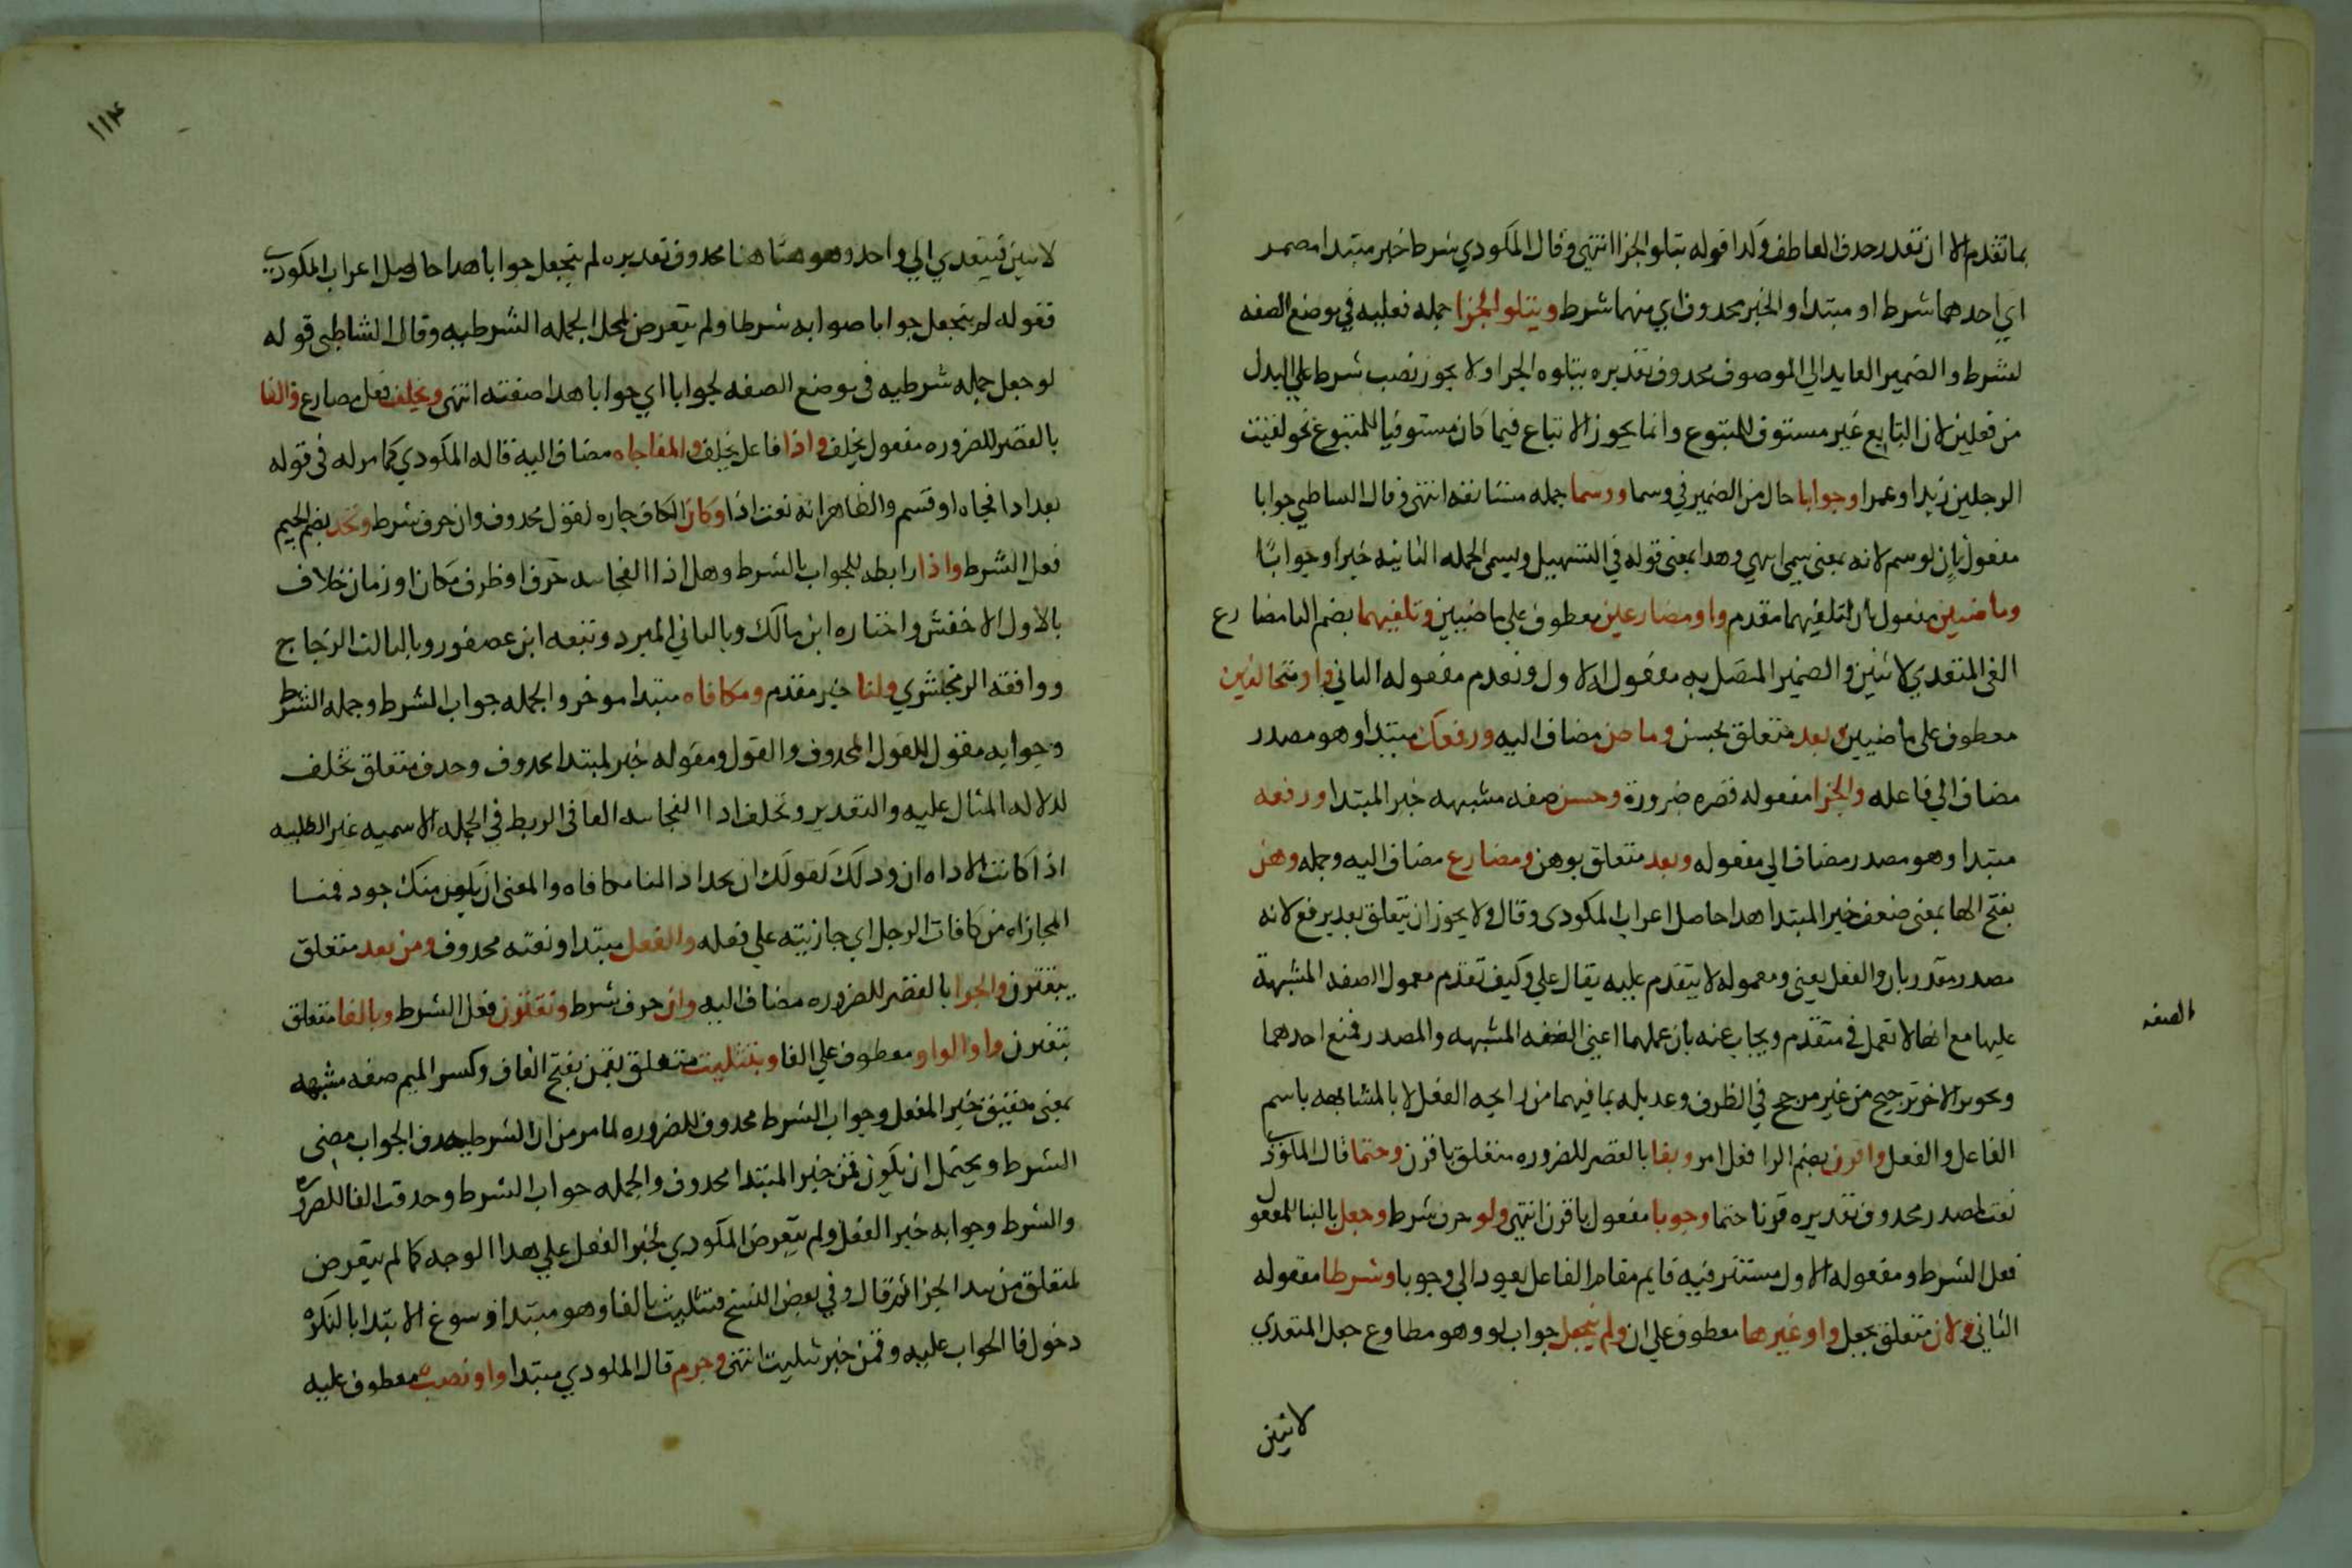 بما تقدم الا ان تقدر حذف العاطف وكدا قوله يتلو الجزا انتهى وقال المكودي شرط خبر مبتدا مضمر
اي احدهما شرط او مبتدا والخبر محدوف اي منهما شرط ويتلو الجزا جمله فعليه في موضع الصفه
لشرط والضمير العايد الي الموصوف محدوف تقديره يتلوه الجزا ولا يجوز نصب شرط علي البدل
من فعلين لان التابع غير مستوف للمتبوع وانما يجوز الاتباع فيما كان مستوفيا للمتبوع نحو لقيت
الرجلين زيدا وعمرا وجوابا حال من الضمير في وسما ووسما جمله مستانفه انتهى وقال الشاطبي جوابا
مفعول ثان لوسم لانه بمعنى سمي اي وهدا بمعنى قوله في التسهيل ويسمى الجمله الثانيه خبرا وجوابا
وماضيين مفعول ثان لتلفيهما مقدم واو مضارعين معطوف علي ماضيين وتلفيهما بضم التا مضارع
الفى المتعدي لاثنين والضمير المتصل به مفعوله الاول وتقدم مفعوله الثاني واو متخالفين
معطوف على ماضيين وبعد متعلق بحسن وماض مضاف اليه ورفعك مبتدأ وهو مصدر
مضاف الي فاعله والجزا مفعوله قصره ضرورة وحسن صفه مشبهه خبر المبتدا ورفعه
مبتدا وهو مصدر مضاف الي مفعوله وبعد متعلق بوهن ومضارع مضاف اليه وجمله وهن
بفتح الها بمعنى ضعف خبر المبتدا هدا حاصل اعراب المكودى وقال ولا يجوز ان يتعلق بعد برفع لانه
مصدر مقدر بان والفعل يعني ومعموله لا يتقدم عليه يقال علي وكيف تقدم معمول الصفه المشبهة
عليها مع انها لا تعمل في متقدم ويجاب عنه بان عملهما اعني الصفه المشبهه والمصدر فمنع احدهما
الصفه
وتجويز الاخر ترجيح من غير مرجح في الظرف وعديله بما فيهما من رايحه الفعل لا بالمشابهه باسم
الفاعل والفعل واقرن بضم الرا فعل امر وبفا بالقصر للضروره متعلق باقرن وحتما قال المكودي
نعت لمصدر محدوف تقديره قرنا حتما وجوبا مفعول باقرن انتهى ولو حرف شرط وجعل بالبنا للمفعول
فعل الشرط ومفعوله الاول مستتر فيه قايم مقام الفاعل يعود الي وجوبا وشرطا مفعوله
الثاني ولان متعلق بجعل واو غيرها معطوف علي ان ولم ينجعل جواب لو وهو مطاوع جعل المتعدي
لاثنين
١١٤
لاثنين فيتعدي الي واحد وهو هنا محدوف تقديره لم ينجعل جوابا هدا حاصل اعراب المكودي
فقوله لم ينجعل جوابا صوابه شرطا ولم يتعرض لمحل الجمله الشرطيه وقال الشاطبي قوله
لو جعل جمله شرطيه في موضع الصفه لجوابا اي جوابا هدا صفته انتهى وتخلف فعل مضارع والفا
بالقصر للضروره مفعول تخلف واذا فاعل تخلف والمفاجاه مضاف اليه قاله المكودي كما مر له في قوله
بعد ادا فجاه او قسم والظاهر انه نعت اذا وكان الكاف جاره لقول محدوف وان حرف شرط وتجد بضم الجيم
فعل الشرط واذا رابطه للجواب بالشرط وهل اذا الفجاييه حرف او ظرف مكان او زمان خلاف
بالاول الاخفش واختاره ابن مالك وبالثاني المبرد وتبعه ابن عصفور وبالثالث الزجاج
ووافقه الزمخشري ولنا خبر مقدم ومكافاه مبتدا موخر والجمله جواب الشرط وجمله الشرط
وجوابه مقول للقول المحدوف والقول ومقوله خبر لمبتدا محدوف وحدف متعلق تخلف
لدلاله المثال عليه والتقدير وتخلف ادا الفجاييه الفا في الربط في الجمله الاسميه غير الطلبيه
اذا كانت الاداه ان ودلك كقولك ان تجد ادا لنا مكافاه والمعنى ان يكون منك جود فمنا
المجازاه من كافات الرجل اي جازيته علي فعله والفعل مبتدا ونعته محدوف ومن بعد متعلق
بيقترن والجزا بالقصر للضروره مضاف اليه وان حرف شرط وتقترن فعل الشرط وبالفا متعلق
بتقترن واو الواو معطوف علي الفا وبتثليث متعلق بقمن بفتح القاف وكسر الميم صفه مشبهه
بمعنى حقيق خبر الفعل وجواب الشرط محدوف للضروره لما مر من ان الشرط بحدف الجواب مضي
الشرط ويحتمل ان يكون قمن خبر المبتدا محدوف والجمله جواب الشرط وحدفت الفا للضروره
والشرط وجوابه خبر الفعل ولم يتعرض المكودي لخبر الفعل علي هدا الوجه كما لم يتعرض
لمتعلق من بعد الجزا ثم قال وفي بعض النسخ فتثليث بالفا وهو مبتدا وسوغ الابتدا بالنكره
دخول فا الجواب عليه وقمن خبر تثليث انتهى وجزم قال المكودي مبتدا واو نصب معطوف عليه